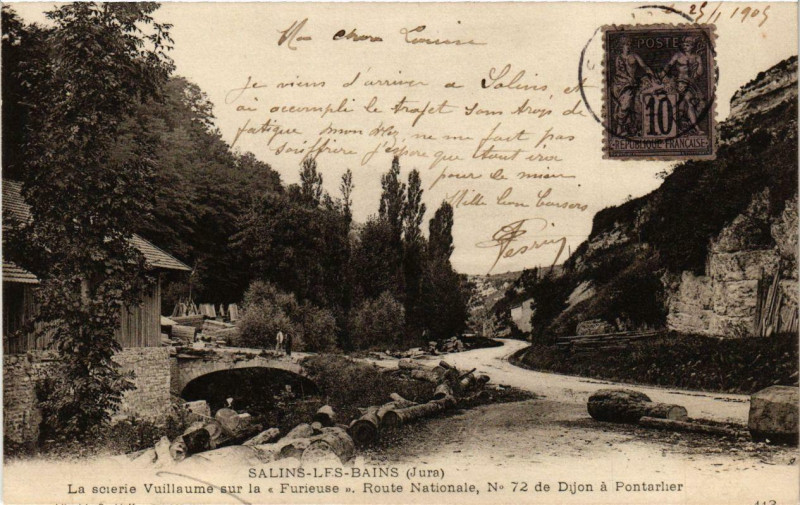 25/1 1905
Ma chère Louise
je viens d'arriver a Salins, et
ai accompli le trajet sans trop de
fatigue mon  ne me fait pas
souffrire j'espère que tout ira
pour le mieux
Mille bon baisers
POSTE
10
REPUBLIQUE FRANÇAISE
SALINS-LES-BAINS (Jura)
La scierie Vuillaume sur la « Furieuse ». Route Nationale, No 72 de Dijon à Pontarlier